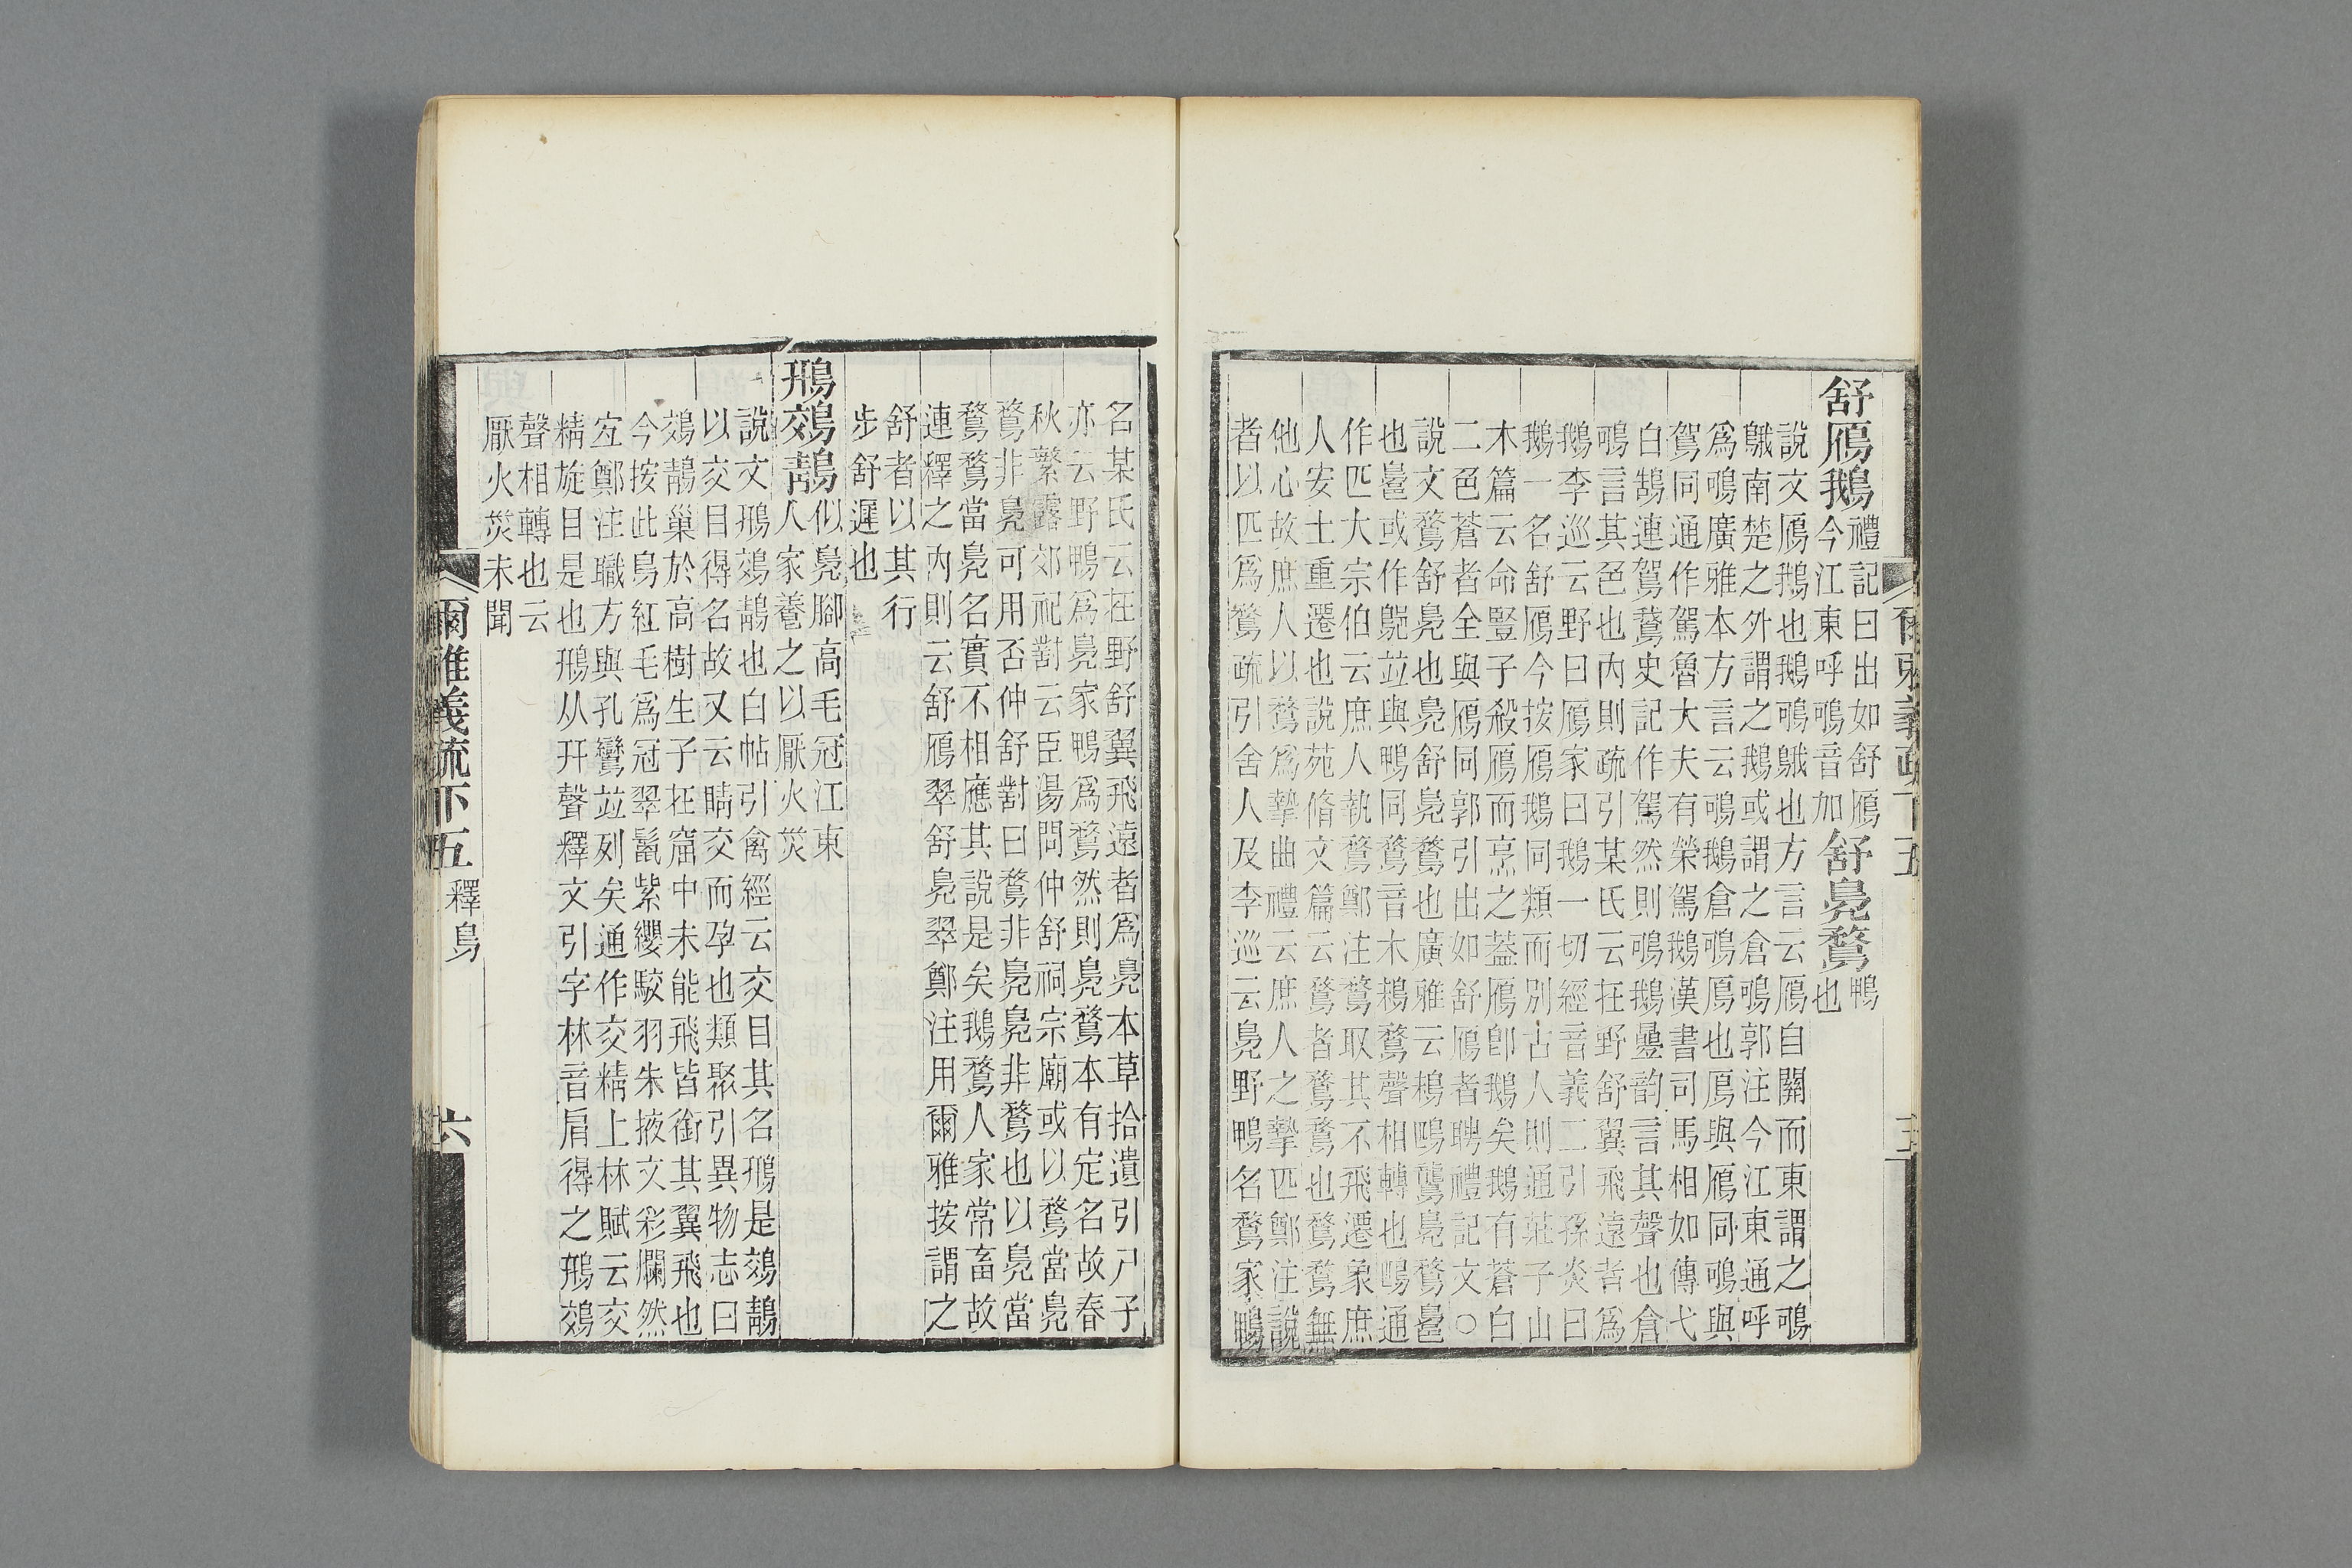 舒鴈鵝禮記曰出如舒鴈今江東呼鴚音加舒鳧鶩鴨也
說文鴈鵝也鵝鴚䳘也方言云鴈自關而東謂之鴚
䳘南楚之外謂之鵝或謂之倉鴚郭注今江東通呼
爲鴚廣雅本方言云鴚鵝倉鴚鳫也鳫與鴈同鴚與
駕同通作駕魯大夫有榮駕鵝漢書司馬相如傳弋
白鵠連駕鵞史記作駕然則鴚鵝疊韵言其聲也倉
鴚言其色也內則疏引某氏云在野舒翼飛遠者爲
鵝李巡云野曰鴈家曰鵝一切經音義二引孫炎曰
鵝一名舒鴈今按鴈鵝同類而別古人則通莊子山
木篇云命豎子殺鴈而烹之葢鴈卽鵝矣鵝有蒼白
二色蒼者全與鴈同郭引出如舒鴈者聘禮記文○
說文鶩舒鳧也鳧舒鳧鶩也廣雅云鳧鶩
也或作並與鴨同鶩音木鶩聲相轉也鴄通
作匹大宗伯云庶人執鶩鄭注鶩取其不飛遷象庶
人安土重遷也說苑脩文篇云鶩者鶩鶩也鶩鶩無
他心故庶人以鶩爲摯曲禮云庶人之摯匹鄭注說
者以匹爲鶩疏引舍人及李巡云鳧野鴨名鶩家鴨
名某氏云在野舒翼飛遠者爲鳧本草拾遺引尸子
亦云野鴨爲鳧家鴨爲鶩然則鳧鶩本有定名故春
秋繁露郊祀對云臣湯問仲舒祠宗廟或以鶩當鳧
鶩非鳧可用否仲舒對曰鶩非鳧鳧非鶩也以鳧當
鶩鶩當鳧名實不相應其說是矣鵝鶩人家常畜故
連釋之內則云舒鴈翠舒鳧翠鄭注用爾雅按謂之
舒者以其行
步舒遲也
鳽鵁鶄似鳧腳高毛冠江東人家養之以厭火災
說文鳽鵁鶄也白帖引禽經云交目其名鳽是鵁鶄
以交目得名故又云睛交而孕也類聚引異物志曰
鵁鶄巢於高樹生子在窟中未能飛皆銜其翼飛也
今按此鳥紅毛爲冠翠鬛紫纓駮羽朱掖文彩爛然
宐鄭注職方與孔鸞並列矣通作交精上林賦云交
精旋目是也鳽从幵聲釋文引字林音肩得之鳽鵁
聲相轉也云
厭火災未聞
爾雅義疏下五 釋鳥 六